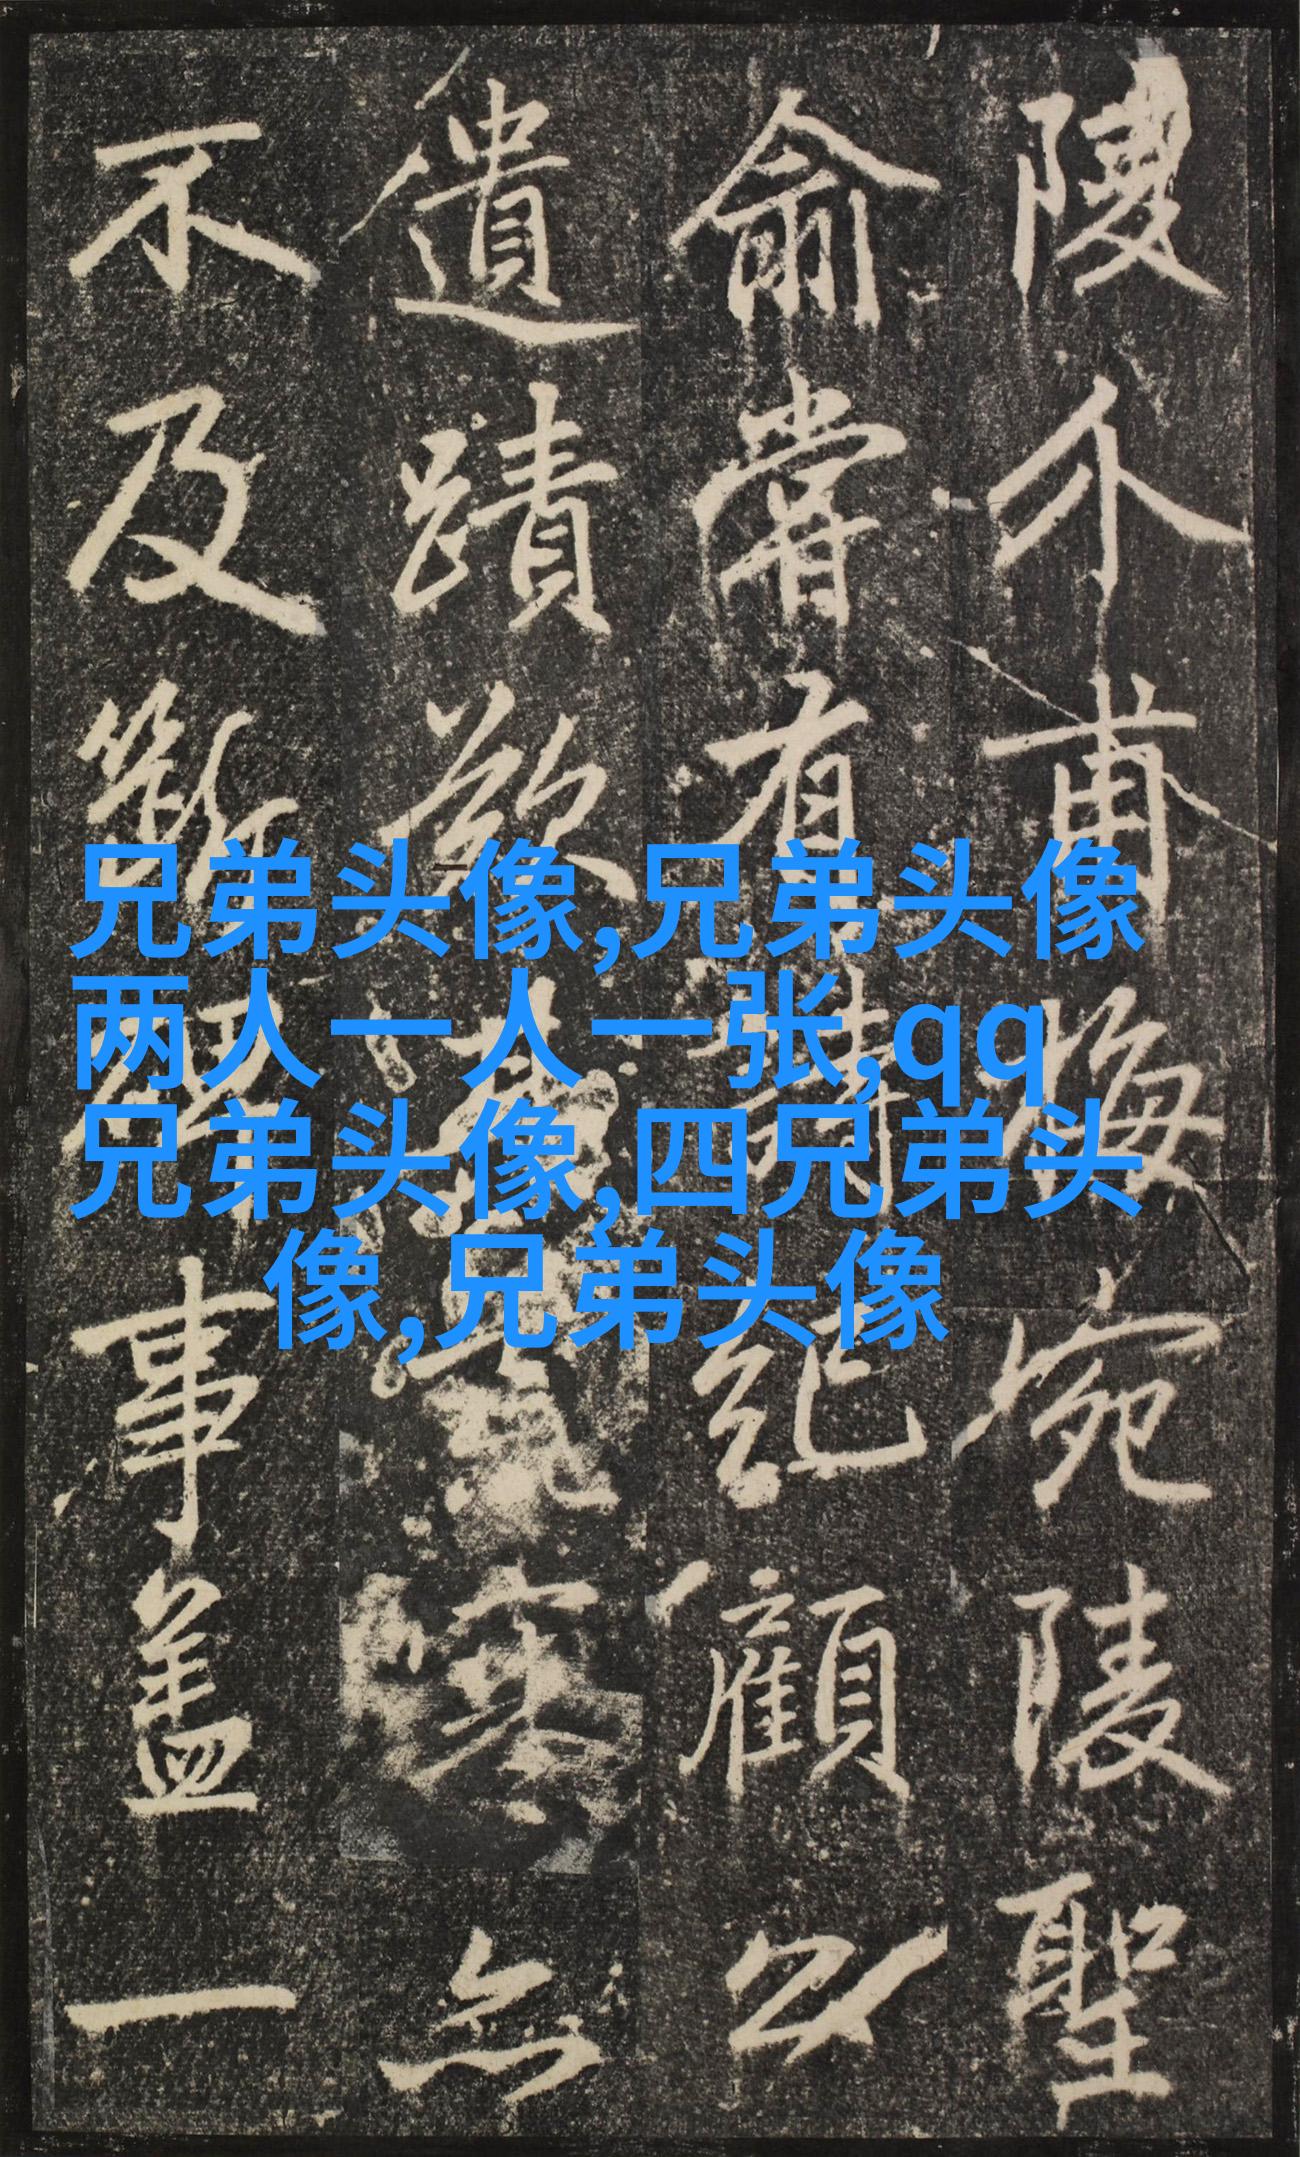 陵介甫梅宛陵聖
俞嘗有詩紀顧以
遺蹟欲無
不及斷碑事蓋一
兄弟头像,兄弟头像
两人一人一张,qq
兄弟头像,四兄弟头
像,兄弟头像